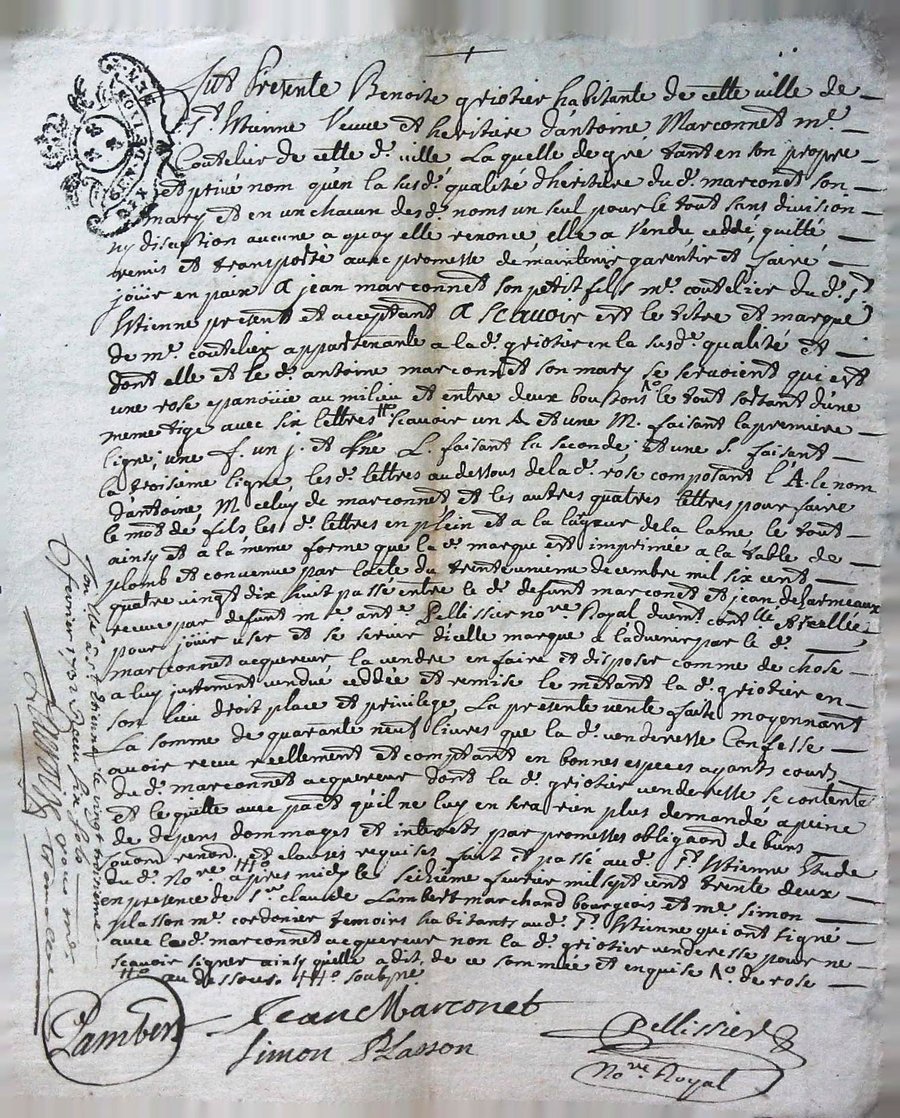 fut Presente Benoite griotier habitante de cette ville de
St. Etienne Veuve et heritiere d'antoine Marconnet me.
Coutelier de cette d. ville Laquelle de gre tant en son propre
et privé nom qu'en la susd. qualité d'heritiere du d. marconet son
mary et en un chacun des d. noms un seul pour le tout sans division
ny discution aucune a quoy elle renonce, elle a Vendu ceddé, quitté
remis et transporté avec promesse de maintenir garentir et faire
joüir en paix A jean marconnet son petit fils me. coutelier du d. St.
Etienne present et acceptant A Scavoir est le titre et marque
de me. coutelier appartenante a la d. griotier en la susd. qualité et
dont elle et le d. antoine marconnet son mary se servoient qui est
une rose epanoüie au milieu et entre deux boustons le tout sortant d'une
meme tige avec six lettres Scavoir un A et une M. faisant la premiere
ligne, une f. un j. et une L. faisant la seconde et une S. faisant
la troisieme ligne, les d. lettres au dessous de la d. rose composant l'A. le nom
d'antoine M celuy de marconnet et les autres quatres lettres pour faire
le mot de fils, les d. lettres en plein et a la largeur de la lame, le tout
ainsy et à la meme forme que la d. marque est imprimée a la table de
plomb et convenue par l'acte du trente unieme decembre mil six cent
quatre vingt dix huit passé entre le d. defunt marconet et jean desarmeaux
recue par defunt me. ante. Pellissier nore. Royal duemt. contllé. et scellée
pour joüir user et se servir d'icelle marque a l'advenir par le d.
marconnet acquereur, la vendre en faire et disposer comme de chose
a luy justement vendüe ceddée et remise le metant la d. griotier en
son lieu droit place et privilege, La presente vente faite moyonnant
La somme de quarante neuf livres que la d. venderesse Confesse
avoir recu reellement et comptant en bonnes especes ayants cours
du d. marconnet acquereur dont la d. griotier venderesse se contente
et le quitte avec pact qu'il ne luy en sera rien plus demandé a peine
de depens dommages et interets par promesses obligaond. de biens
renond. et clauses requises fait et passé au d. St. Etienne Etude
du d. Nore. apres midy le seizieme fevrier mil sept cent trente deux
en presence de Sr. claude Lambert marchand bourgeois et me. Simon
plasson me. cordonier temoins habitants aud. St. Etienne qui ont signé
avec le d. marconnet acquereur non la d. griotier venderesse pour ne
scavoir signer ainsy qu'elle a dit, de ce sommée et enquise de rose
au dessous
Lambert
Jean Marconet
Simon Plasson
Pellissier
Nore. Royal
a St. Etienne le vingt
fevrier 1732 Recu six sols